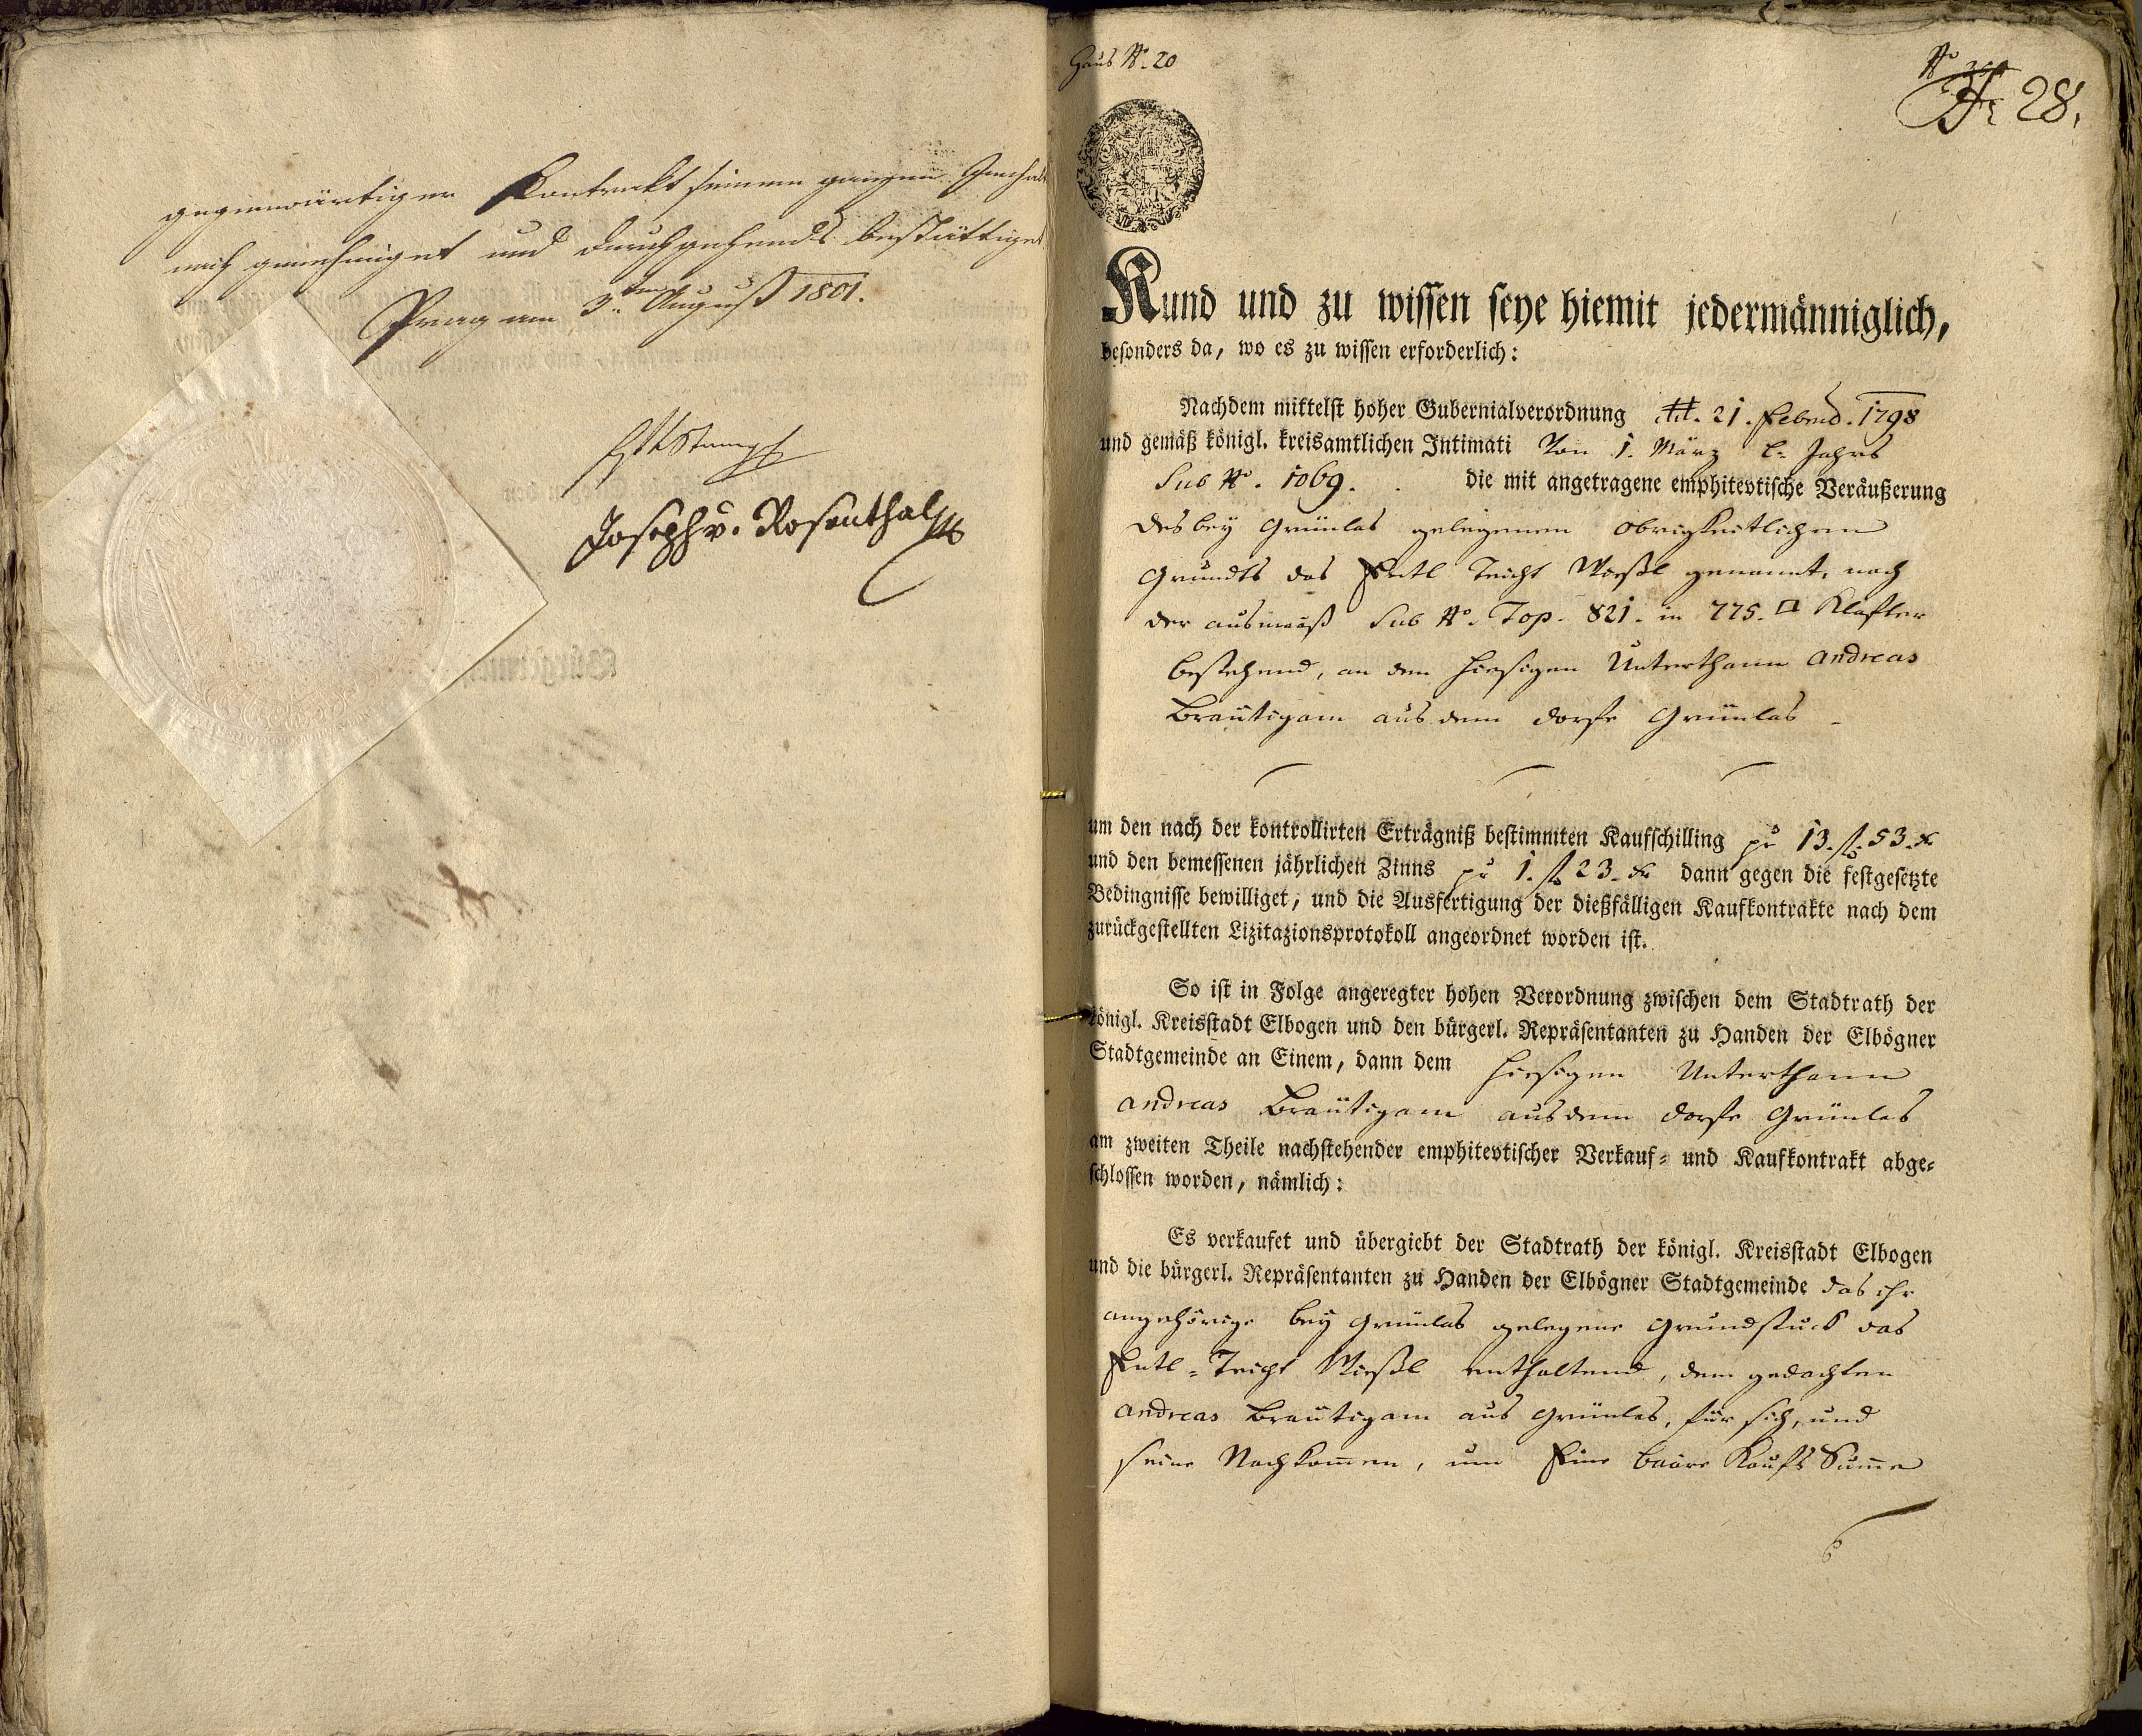 gegenwärtiger Kontrakt seinem ganzen Innhalt
nach genehmiget und durchgehends bestättiget
Prag am 3ten August 1801.
Joseph v. Rosenthal
Haus No. 20
No
Nr 28.
Kund und zu wissen seye hiemit jedermänniglich,
besonders da, wo es zu wissen erforderlich:
Nachdem mittelst hoher Gubernialverordnung dtt. 21. Februd. 1798
und gemäß königl. kreisamtlichen Intimati Von 1. März l. Jahrs
Sub No. 1069. die mit angetragene emphitevtische Veräußerung
des bey Grünlas gelegenen obrigkeitlichen
Grundts das Entl Teicht Wießl genannt, nach
der ausmaaß Sub No. Top. 821. in 775. □ Klafter
bestehend, an den hiesigen Unterthann Andreas
Bräutigam aus dem Dorfe Grünlas
um den nach der kontrollirten Erträgniß bestimmten Kaufschilling pr 13. fl. 53. xr
und den bemessenen jährlichen Zinns pr 1. fl. 23. xr dann gegen die festgesetzte
Bedingnisse bewilliget, und die Ausfertigung der dießfälligen Kaufkontrakte nach dem
zurückgestellten Lizitazionsprotokoll angeordnet worden ist.
So ist in Folge angeregter hohen Verordnung zwischen dem Stadtrath der
königl. Kreisstadt Elbogen und den bürgerl. Repräsentanten zu Handen der Elbögner
Stadtgemeinde an Einem, dann dem hiesigen Unterthann
Andreas Bräutigam aus dem Dorfe Grünlas
am zweiten Theile nachstehender emphitevtischer Verkauf- und Kaufkontrakt abge-
schlossen worden, nämlich:
Es verkaufet und übergiebt der Stadtrath der königl. Kreisstadt Elbogen
und die bürgerl. Repräsentanten zu Handen der Elbögner Stadtgemeinde das ihr
angehörige bey Grünlas gelegene Grundstuck das
Entl-Teicht Wießl enthaltend, dem gedachten
Andreas Bräutigam aus Grünlas, für sich, und
seine Nachkomen, um Eine baare Kaufs Sume